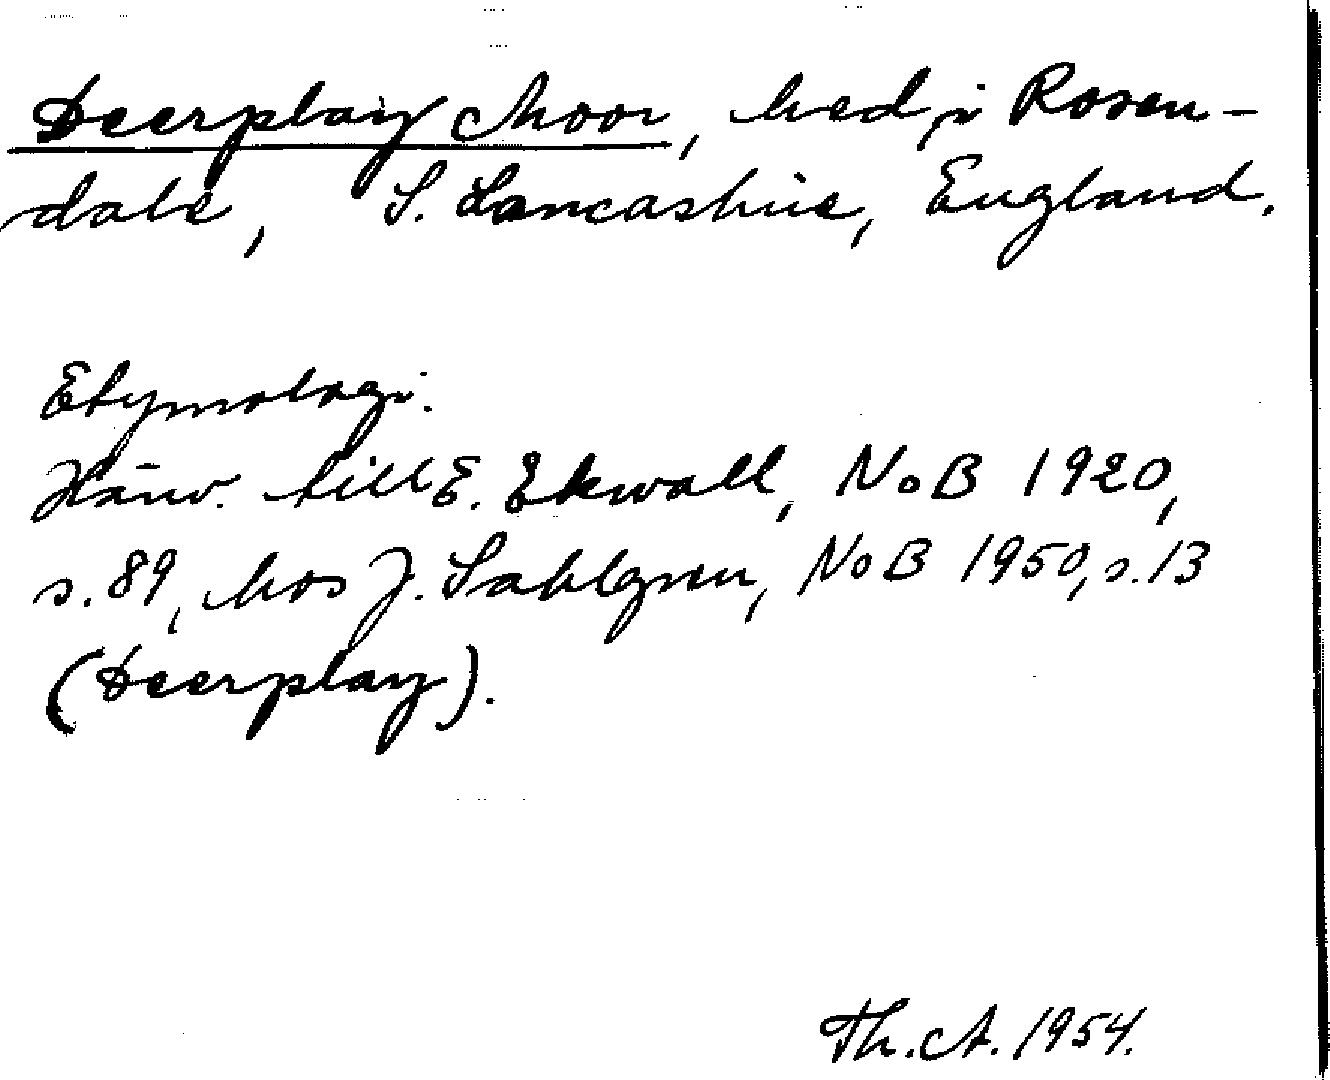 Deerplay Moor, hed, i Rosen-
dale, S. Lancashire, England.
Etymologi.
Hänv. till E. Ekwall, NoB 1920,
s. 89, hos J. Sahlgren, NoB 1950, s. 13
(Deerplay).
Th. A. 1954.